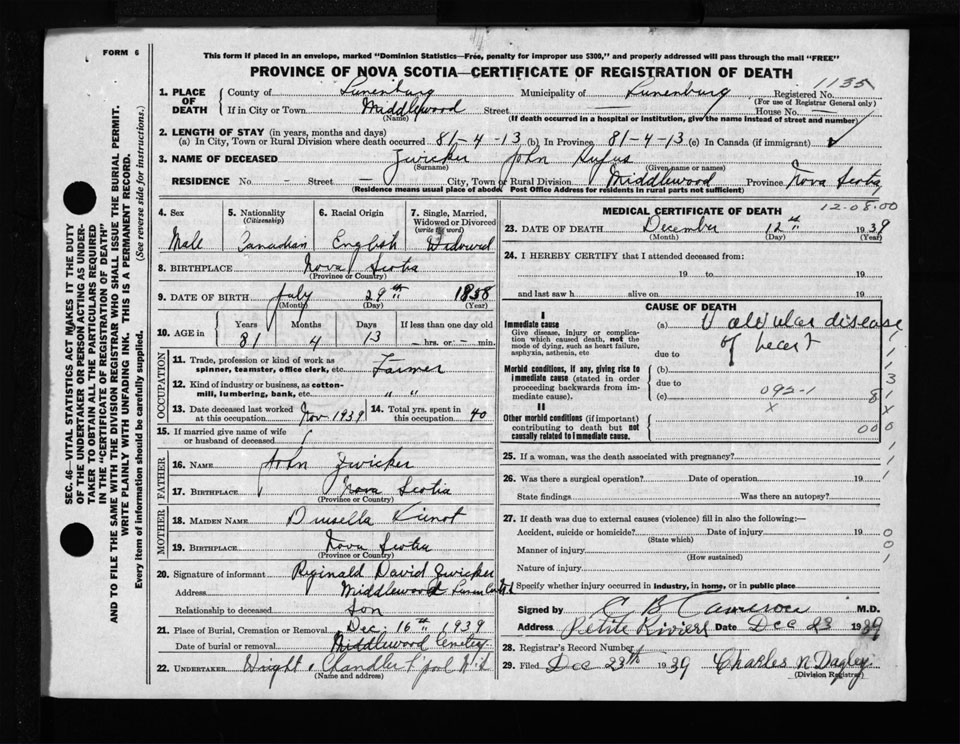 FORM 6
This form if placed in an envelope, marked "Dominion Statistics—Free, penalty for improper use $300," and properly addressed will pass through the mail "FREE"
PROVINCE OF NOVA SCOTIA—CERTIFICATE OF REGISTRATION OF DEATH
1135
1. PLACE OF DEATH County of Lunenburg Municipality of Lunenburg Registered No.
(For use of Registrar General only)
If in City or Town Middlewood Street — House No. —
(Name) (If death occurred in a hospital or institution, give the name instead of street and number)
2. LENGTH OF STAY (in years, months and days)
(a) In City, Town or Rural Division where death occurred 81-4-13 (b) In Province 81-4-13 (c) In Canada (if immigrant) ✓
3. NAME OF DECEASED Zwicker John Rufus
(Surname) (Given name or names)
RESIDENCE No. — Street — City, Town or Rural Division Middlewood Province Nova Scotia
(Residence means usual place of abode. Post Office Address for residents in rural parts not sufficient)
4. Sex 5. Nationality (Citizenship) 6. Racial Origin 7. Single, Married, Widowed or Divorced (write the word)
Male Canadian English Widowed
8. BIRTHPLACE Nova Scotia
(Province or Country)
9. DATE OF BIRTH July 29th 1858
(Month) (Day) (Year)
10. AGE in Years Months Days If less than one day old
81 4 13 — hrs. or — min.
OCCUPATION
11. Trade, profession or kind of work as spinner, teamster, office clerk, etc. Farmer
12. Kind of industry or business, as cotton-mill, lumbering, bank, etc. " "
13. Date deceased last worked at this occupation Nov 1939 14. Total yrs. spent in this occupation 40
15. If married give name of wife or husband of deceased
FATHER
16. NAME John Zwicker
17. BIRTHPLACE Nova Scotia
(Province or Country)
MOTHER
18. MAIDEN NAME Drusella
19. BIRTHPLACE Nova Scotia
(Province or Country)
20. Signature of informant Reginald David Zwicker
Address Middlewood Lunen
Relationship to deceased Son
21. Place of Burial, Cremation or Removal Dec. 16th 1939
Date of burial or removal Middlewood Cemetery
22. UNDERTAKER Wright & Chandler L'pool
(Name and address)
MEDICAL CERTIFICATE OF DEATH
12-08.00
23. DATE OF DEATH December 12th 1939
(Month) (Day) (Year)
24. I HEREBY CERTIFY that I attended deceased from:
19 to 19
and last saw h alive on 19
CAUSE OF DEATH
I
Immediate cause (a) Valvular disease
Give disease, injury or complication which caused death, not the mode of dying, such as heart failure, asphyxia, asthenia, etc
due to of heart
Morbid conditions, if any, giving rise to immediate cause (stated in order proceeding backwards from immediate cause).
(b)
due to
(c) 092-1
x
II
Other morbid conditions (if important) contributing to death but not causally related to immediate cause.
25. If a woman, was the death associated with pregnancy?
26. Was there a surgical operation? Date of operation 19
State findings Was there an autopsy?
27. If death was due to external causes (violence) fill in also the following:—
Accident, suicide or homicide? Date of injury 19
(State which)
Manner of injury
(How sustained)
Nature of injury
Specify whether injury occurred in industry, in home, or in public place
Signed by C B Cameron M.D.
Address Petite Riviere Date Dec 23 1939
28. Registrar's Record Number
29. Filed Dec 28th 1939 Charles N Dagley
(Division Registrar)
SEC. 46—VITAL STATISTICS ACT MAKES IT THE DUTY
OF THE UNDERTAKER OR PERSON ACTING AS UNDER-
TAKER TO OBTAIN ALL THE PARTICULARS REQUIRED
IN THE "CERTIFICATE OF REGISTRATION OF DEATH"
AND TO FILE THE SAME WITH THE DIVISION REGISTRAR WHO SHALL ISSUE THE BURIAL PERMIT.
WRITE PLAINLY WITH UNFADING INK. THIS IS A PERMANENT RECORD.
Every item of information should be carefully supplied. (See reverse side for instructions.)